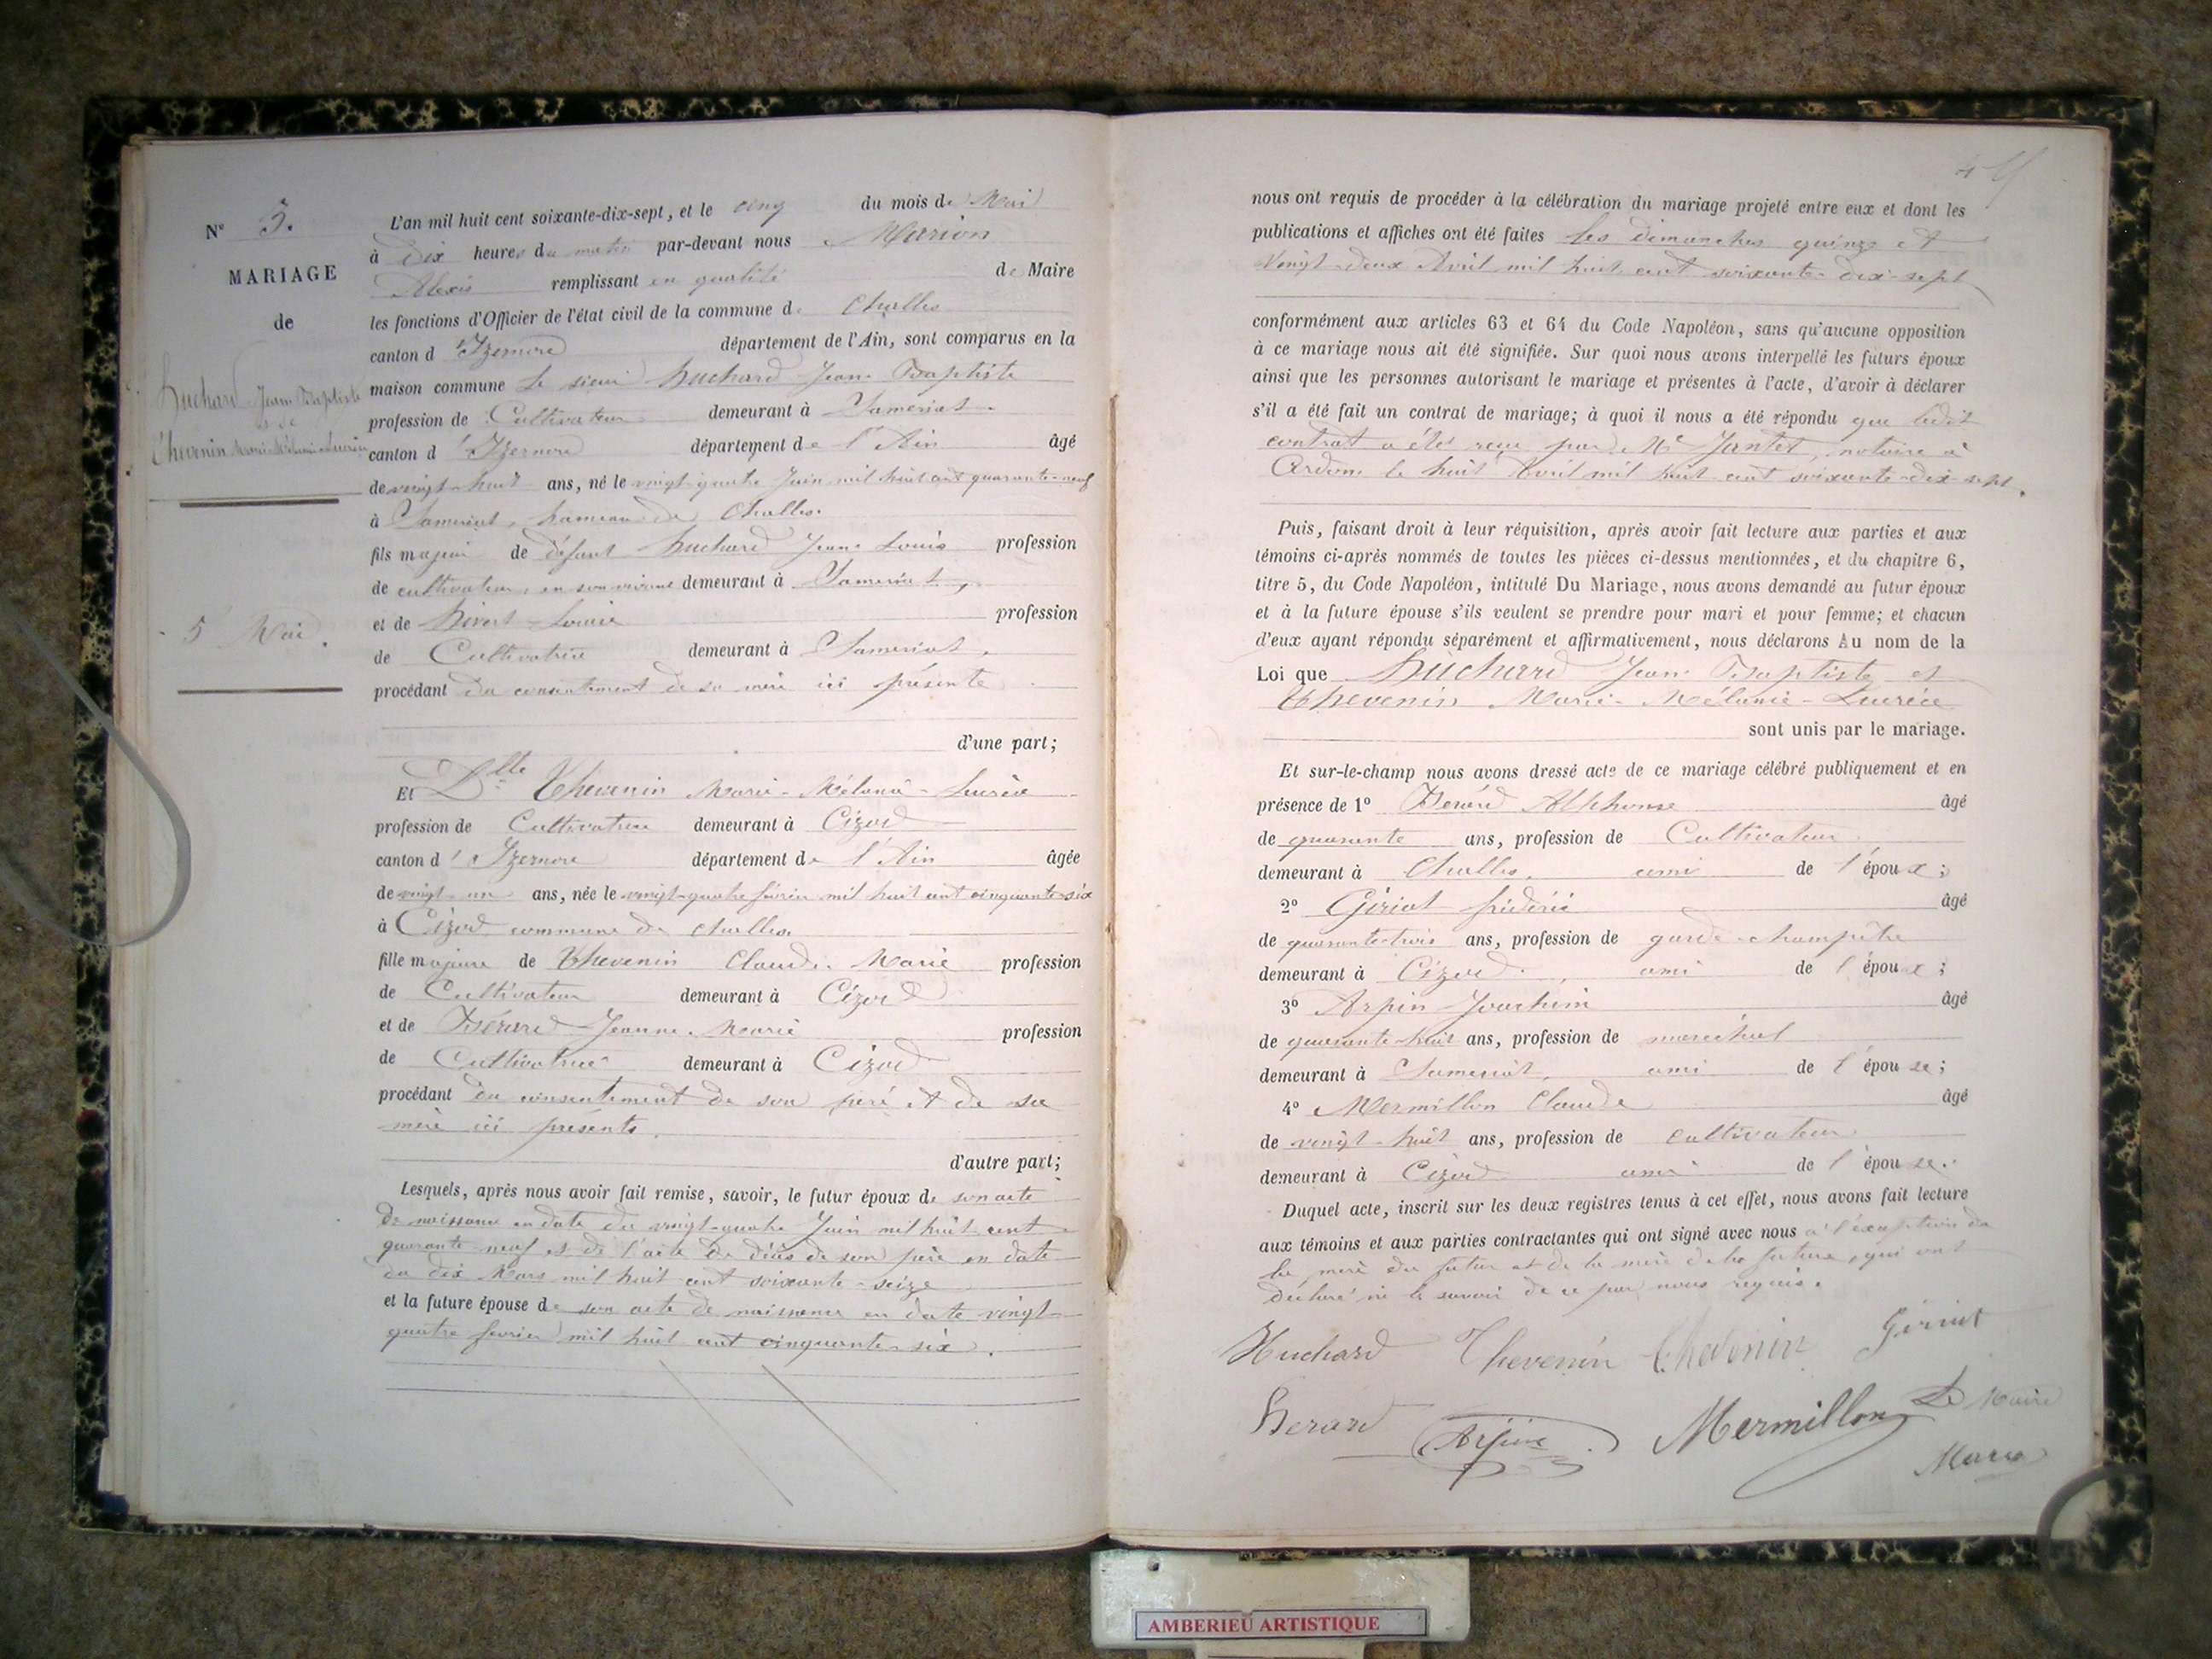 N° 3.
MARIAGE
de
Huchard Jean Baptiste
et de
Thevenin Marie Mélanie Lucrèce
5 Mai.
L'an mil huit cent soixante-dix-sept, et le cinq du mois de Mai
à dix heures du matin par-devant nous Marion
Alexis remplissant en qualité de Maire
les fonctions d'Officier de l'état civil de la commune de Challes
canton d'Izernore département de l'Ain, sont comparus en la
maison commune Le sieur Huchard Jean Baptiste
profession de Cultivateur demeurant à Samériat.
canton d'Izernore département de l'Ain âgé
de vingt-huit ans, né le vingt-quatre Juin mil huit cent quarante-neuf
à Samériat, hameau de Challes.
fils majeur de défunt Huchard Jean Louis profession
de cultivateur, en son vivant demeurant à Samériat,
et de Louise profession
de Cultivatrice demeurant à Samériat,
procédant du consentement de sa mère ici présente
d'une part;
Et Dlle Thevenin Marie-Mélanie-Lucrèce
profession de Cultivatrice demeurant à Cizod
canton d'Izernore département de l'Ain âgée
de vingt-un ans, née le vingt-quatre février mil huit cent cinquante-six
à Cizod commune de Challes.
fille majeure de Thevenin Claude Marie profession
de Cultivateur demeurant à Cizod
et de Bérard Jeanne-Marie profession
de Cultivatrice demeurant à Cizod
procédant du consentement de son père et de sa
mère ici présents.
d'autre part;
Lesquels, après nous avoir fait remise, savoir, le futur époux de son acte
de naissance en date du vingt-quatre Juin mil huit cent
quarante-neuf et de l'acte de décès de son père en date
du dix Mars mil huit cent soixante-seize
et la future épouse de son acte de naissance en date vingt
quatre février mil huit cent cinquante-six.
nous ont requis de procéder à la célébration du mariage projeté entre eux et dont les
publications et affiches ont été faites les dimanches quinze et
Vingt-deux Avril mil huit cent soixante-dix-sept
conformément aux articles 63 et 64 du Code Napoléon, sans qu'aucune opposition
à ce mariage nous ait été signifiée. Sur quoi nous avons interpellé les futurs époux
ainsi que les personnes autorisant le mariage et présentes à l'acte, d'avoir à déclarer
s'il a été fait un contrat de mariage; à quoi il nous a été répondu que ledit
contrat a étés reçu par Me Jantet, notaire à
le huit Avril mil huit cent soixante-dix-sept.
Puis, faisant droit à leur réquisition, après avoir fait lecture aux parties et aux
témoins ci-après nommés de toutes les pièces ci-dessus mentionnées, et du chapitre 6,
titre 5, du Code Napoléon, intitulé Du Mariage, nous avons demandé au futur époux
et à la future épouse s'ils veulent se prendre pour mari et pour femme; et chacun
d'eux ayant répondu séparément et affirmativement, nous déclarons Au nom de la
Loi que Huchard Jean Baptiste et
Thevenin Marie-Mélanie-Lucrèce
sont unis par le mariage.
Et sur-le-champ nous avons dressé acte de ce mariage célébré publiquement et en
présence de 1° Bérard Alphonse âgé
de quarante ans, profession de Cultivateur
demeurant à Challes, ami de l'époux;
2° Giriat frédéric âgé
de quarante-trois ans, profession de garde-champêtre
demeurant à Cizod, ami de l'époux;
3° Arpin Joachim âgé
de quarante-huit ans, profession de maréchal
demeurant à Samériat, ami de l'épouse;
4° Mermillon Claude âgé
de vingt-huit ans, profession de cultivateur
demeurant à Cizod ami de l'épouse.
Duquel acte, inscrit sur les deux registres tenus à cet effet, nous avons fait lecture
aux témoins et aux parties contractantes qui ont signé avec nous à l'exception de
la mère du futur et de la mère de la future, qui ont
déclaré ne le savoir de ce par nous requis.
Huchard Thevenin Thevenin Giriat
Berard Arpin Mermillon Le Maire
Marion
AMBERIEU ARTISTIQUE